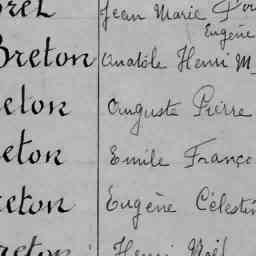 Jean Marie
Eugène
Breton Anatole Henri M
eton Auguste Pierre
eton Emile Franço
reton Eugène Célestin
reton Henri Noël